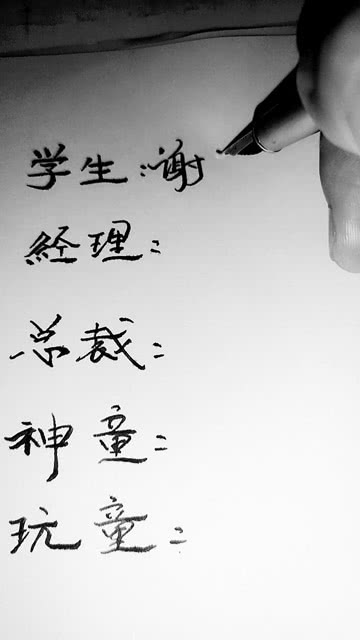 学生:谢
経理:
总裁:
神童:
玩童: